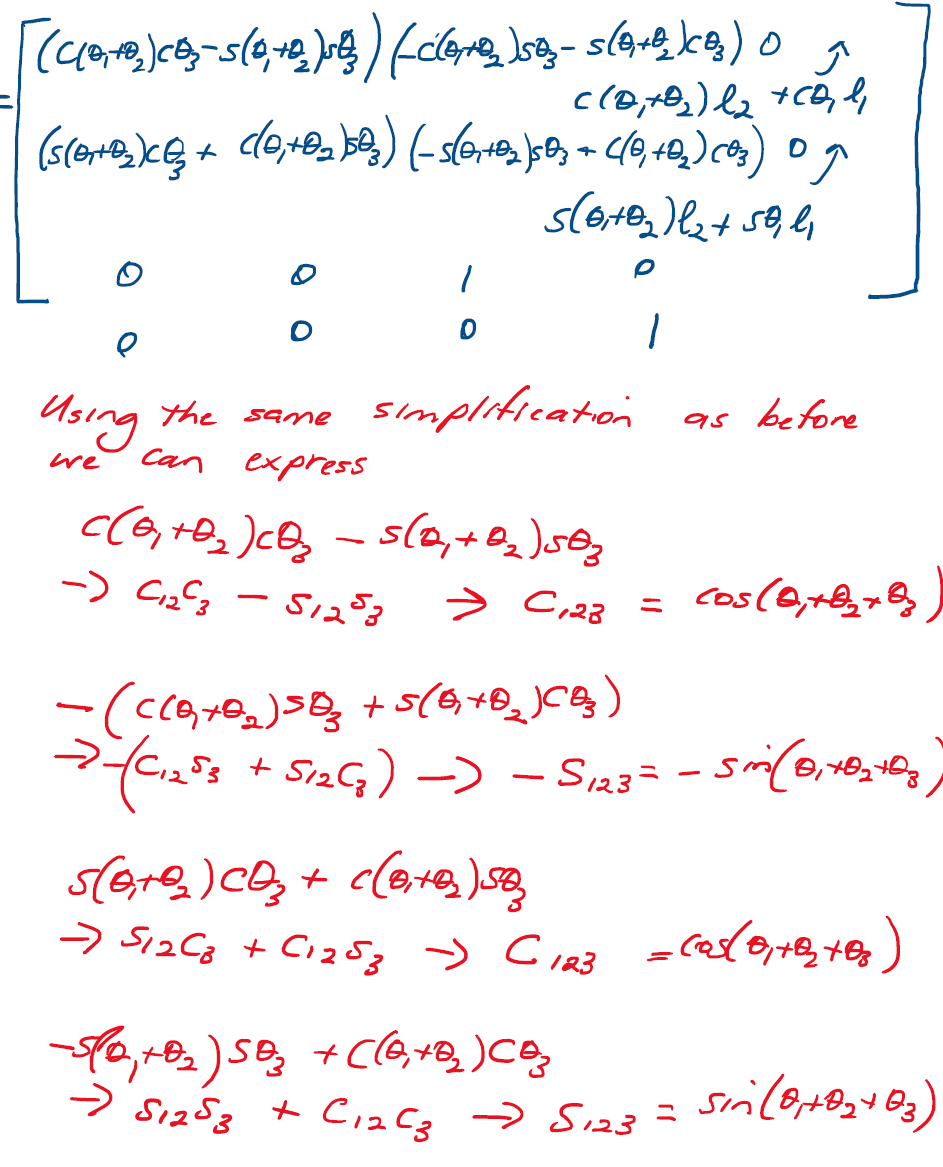 = [ (C(θ₁+θ₂)cθ₃ - s(θ₁+θ₂)sθ₃) (-c(θ₁+θ₂)sθ₃ - s(θ₁+θ₂)cθ₃) 0 ↗
c(θ₁+θ₂)l₂ + cθ₁l₁
(s(θ₁+θ₂)cθ₃ + c(θ₁+θ₂)sθ₃) (-s(θ₁+θ₂)sθ₃ + c(θ₁+θ₂)cθ₃) 0 ↗
s(θ₁+θ₂)l₂ + sθ₁l₁
0 0 1 0 ]
0 0 0 1
Using the same simplification as before
we can express
c(θ₁+θ₂)cθ₃ - s(θ₁+θ₂)sθ₃
-> C₁₂C₃ - S₁₂S₃ -> C₁₂₃ = cos(θ₁+θ₂+θ₃)
-(c(θ₁+θ₂)sθ₃ + s(θ₁+θ₂)cθ₃)
-> -(C₁₂S₃ + S₁₂C₃) -> -S₁₂₃ = -sin(θ₁+θ₂+θ₃)
s(θ₁+θ₂)cθ₃ + c(θ₁+θ₂)sθ₃
-> S₁₂C₃ + C₁₂S₃ -> C₁₂₃ = cos(θ₁+θ₂+θ₃)
-s(θ₁+θ₂)sθ₃ + c(θ₁+θ₂)cθ₃
-> S₁₂S₃ + C₁₂C₃ -> S₁₂₃ = sin(θ₁+θ₂+θ₃)